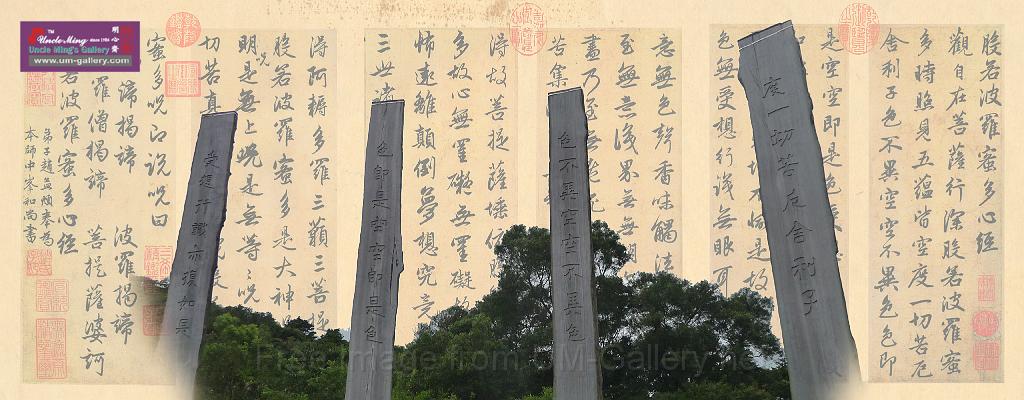 TM
Uncle Ming
Uncle Ming's Gallery
www.um-gallery.com
般若波羅蜜多心經
觀自在菩薩行深般若波羅蜜
多時照見五蘊皆空度一切苦厄
舍利子色不異空空不異色色即
是空空即是色
是故
色無受想行識無眼耳
意無色聲香味觸法
至無意識界無無明
盡乃至無老
苦集
得故菩提薩埵依
多故心無罣礙無罣礙故
怖遠離顛倒夢想究竟
三世諸
得阿耨多羅三藐三菩提
般若波羅蜜多是大神
明咒是無上咒是無等等咒
切苦真
蜜多咒即說咒曰
諦揭諦 波羅揭諦
羅僧揭諦 菩提薩婆訶
若波羅蜜多心經
弟子趙孟頫奉為
本師中峯和尚書
度一切苦厄舍利子
色不異空空不異色
色即是空空即是色
受想行識亦復如是
Free Image from UM-Gallery.net